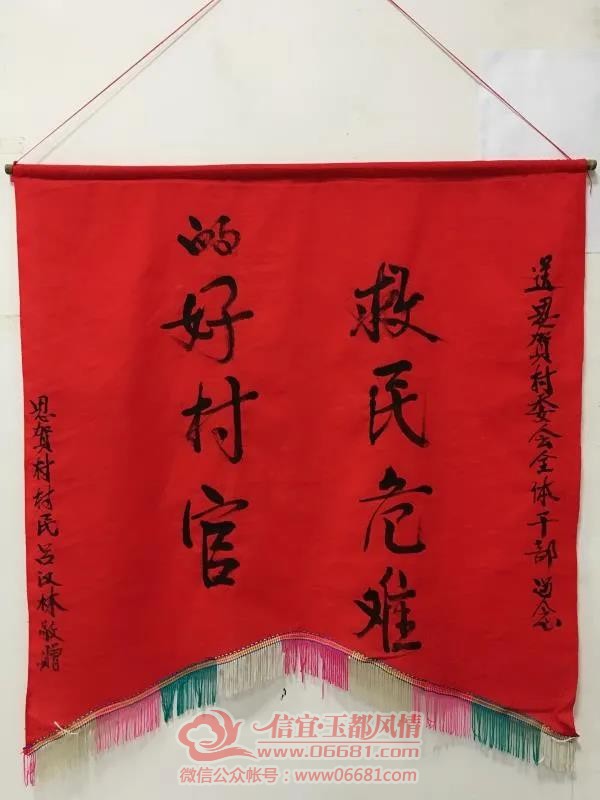 送恩贺村委会全体干部留念
救民危难
的好村官
恩贺村村民吕汉林敬赠
信宜·玉都风情
www.06681.com
微信公众帐号：www06681com